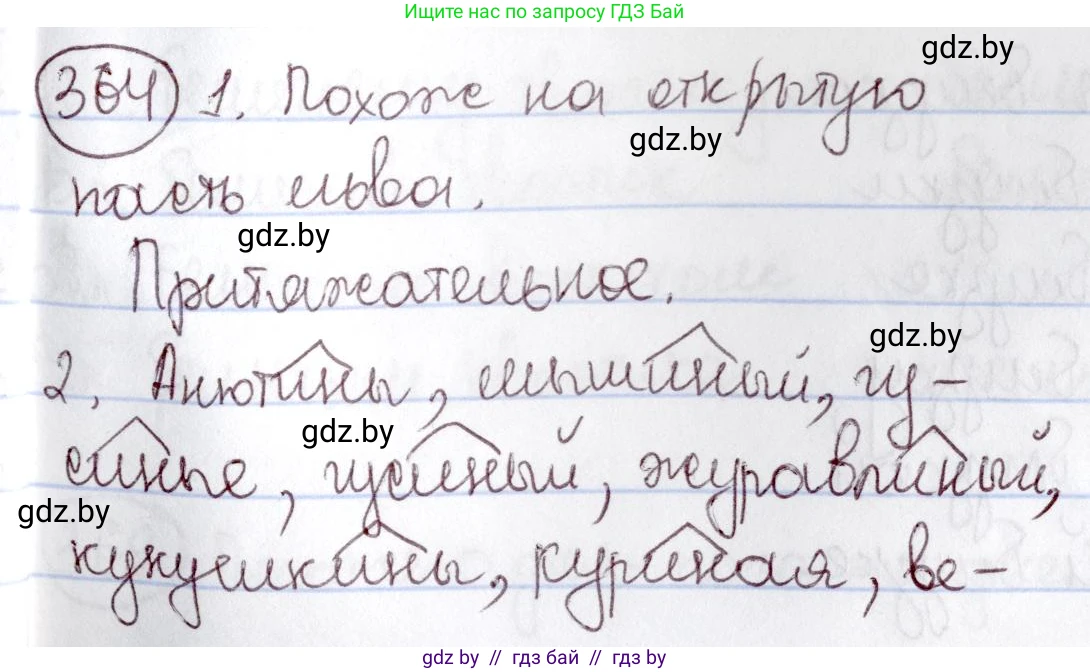 Ищите нас по запросу ГДЗ Бай
gdz.by
364 1. Похоже на открытую
gdz.by
пасть льва.
gdz.by
Притяжательное.
gdz.by
2. Анютины, мышиный, гу-
gdz.by
синые, гусиный, журавлиный,
gdz.by
кукушкины, куриная, ве-
gdz.by // гдз бай // гдз by